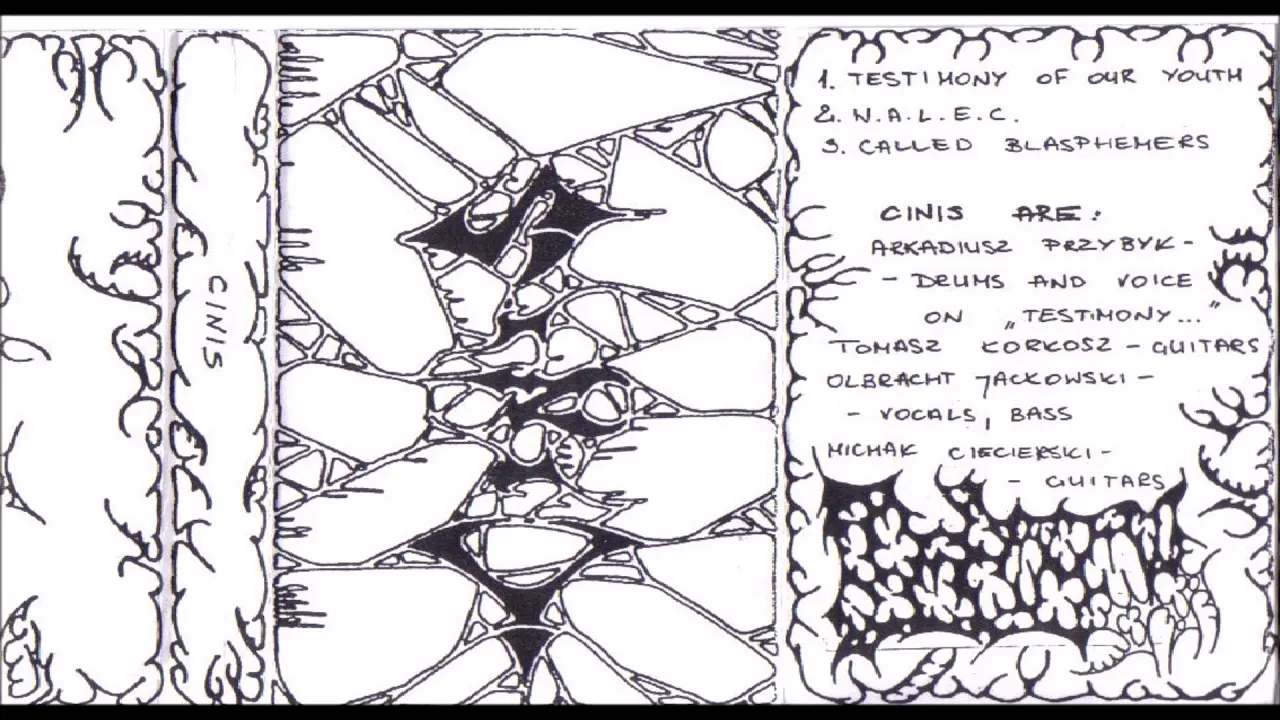 CINIS
1. TESTIMONY OF OUR YOUTH
2. N.A.L.E.C.
3. CALLED BLASPHEMERS
CINIS ARE:
ARKADIUSZ PRZYBYK -
- DRUMS AND VOICE
ON „TESTIMONY..."
TOMASZ KORKOSZ - GUITARS
OLBRACHT JACKOWSKI -
- VOCALS, BASS
MICHAK CIECIERSKI -
- GUITARS